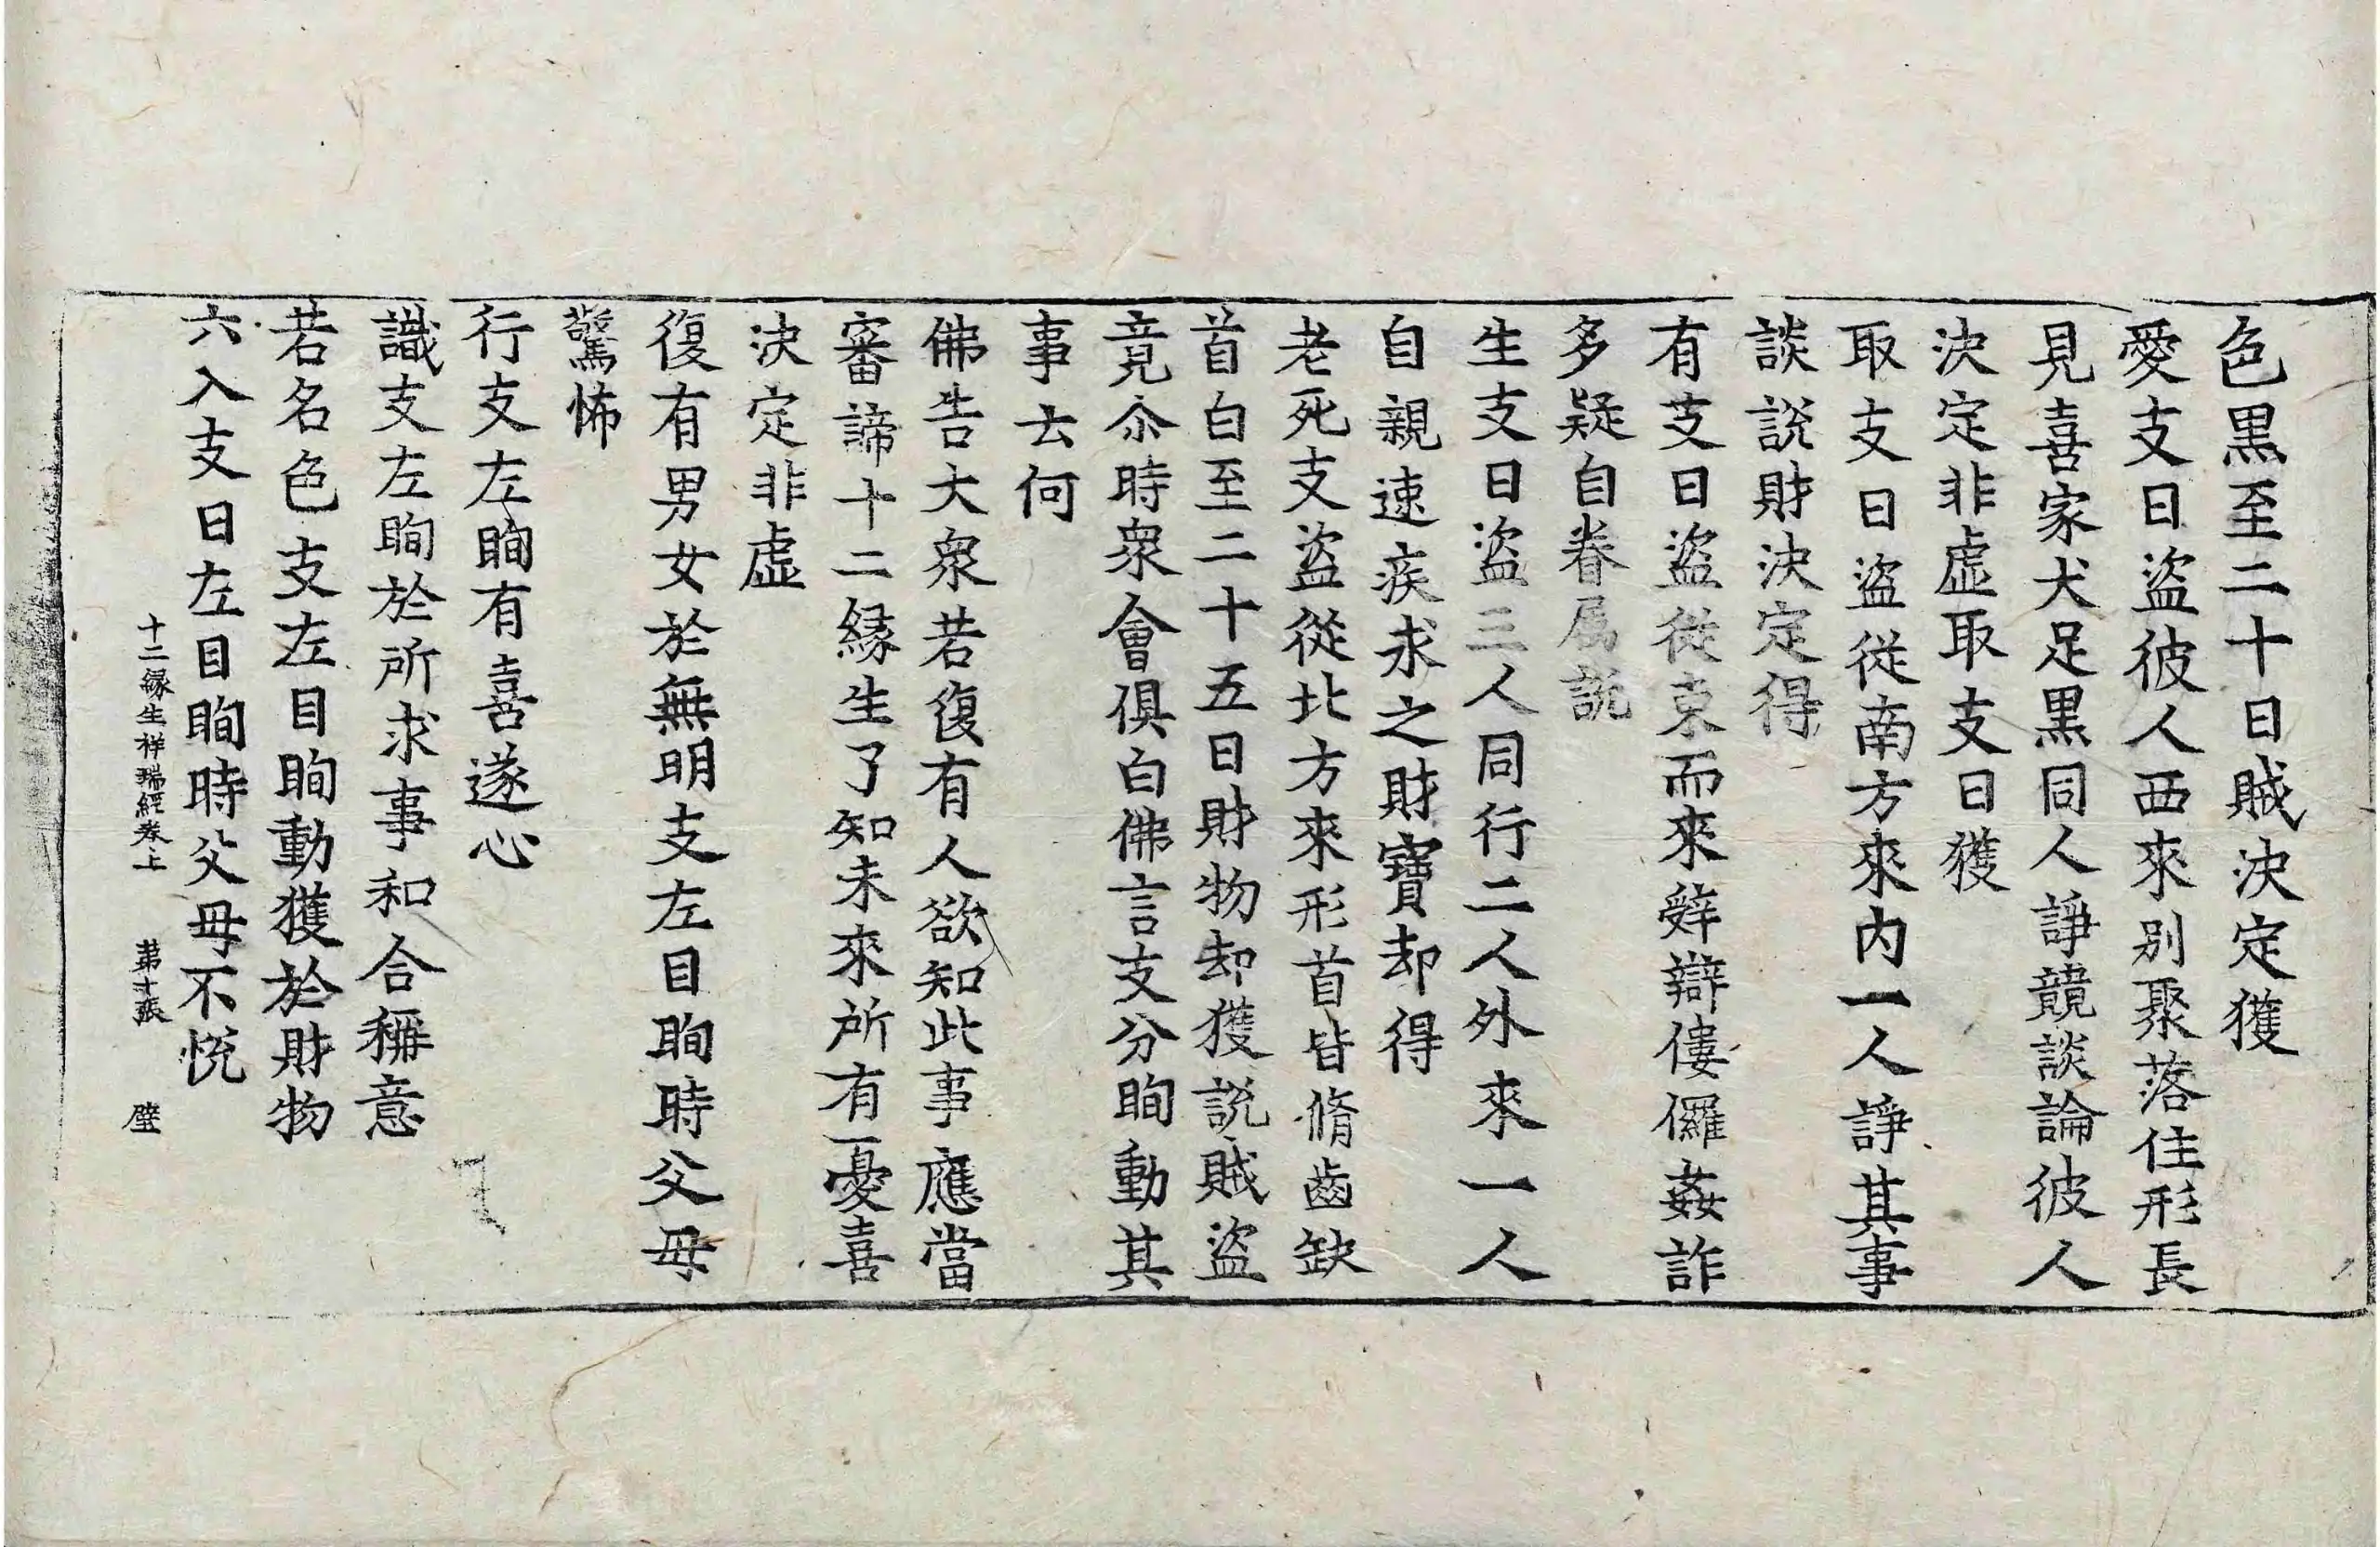 色黒至二十日賊決定獲
愛支日盜彼人西來別聚落住形長
見喜家犬足黒同人諍競談論彼人
決定非虛取支日獲
取支日盜從南方來内一人諍其事
談說財決定得
有支日盜從東而來辝辯僂儸姦詐
多疑自眷属說
生支日盜三人同行二人外來一人
自親速疾求之財寶却得
老死支盜從北方來形首皆脩齒缺
首白至二十五日財物却獲說賊盜
竟尒時衆會俱白佛言支分眴動其
事去何
佛告大衆若復有人欲知此事應當
審諦十二縁生了知未來所有憂喜
決定非虛
復有男女於無明支左目眴時父母
驚怖
行支左眴有喜遂心
識支左眴於所求事和合稱意
若名色支左目眴動獲於財物
六入支日左目眴時父母不悅
十二緣生祥瑞經卷上　第十張　壁